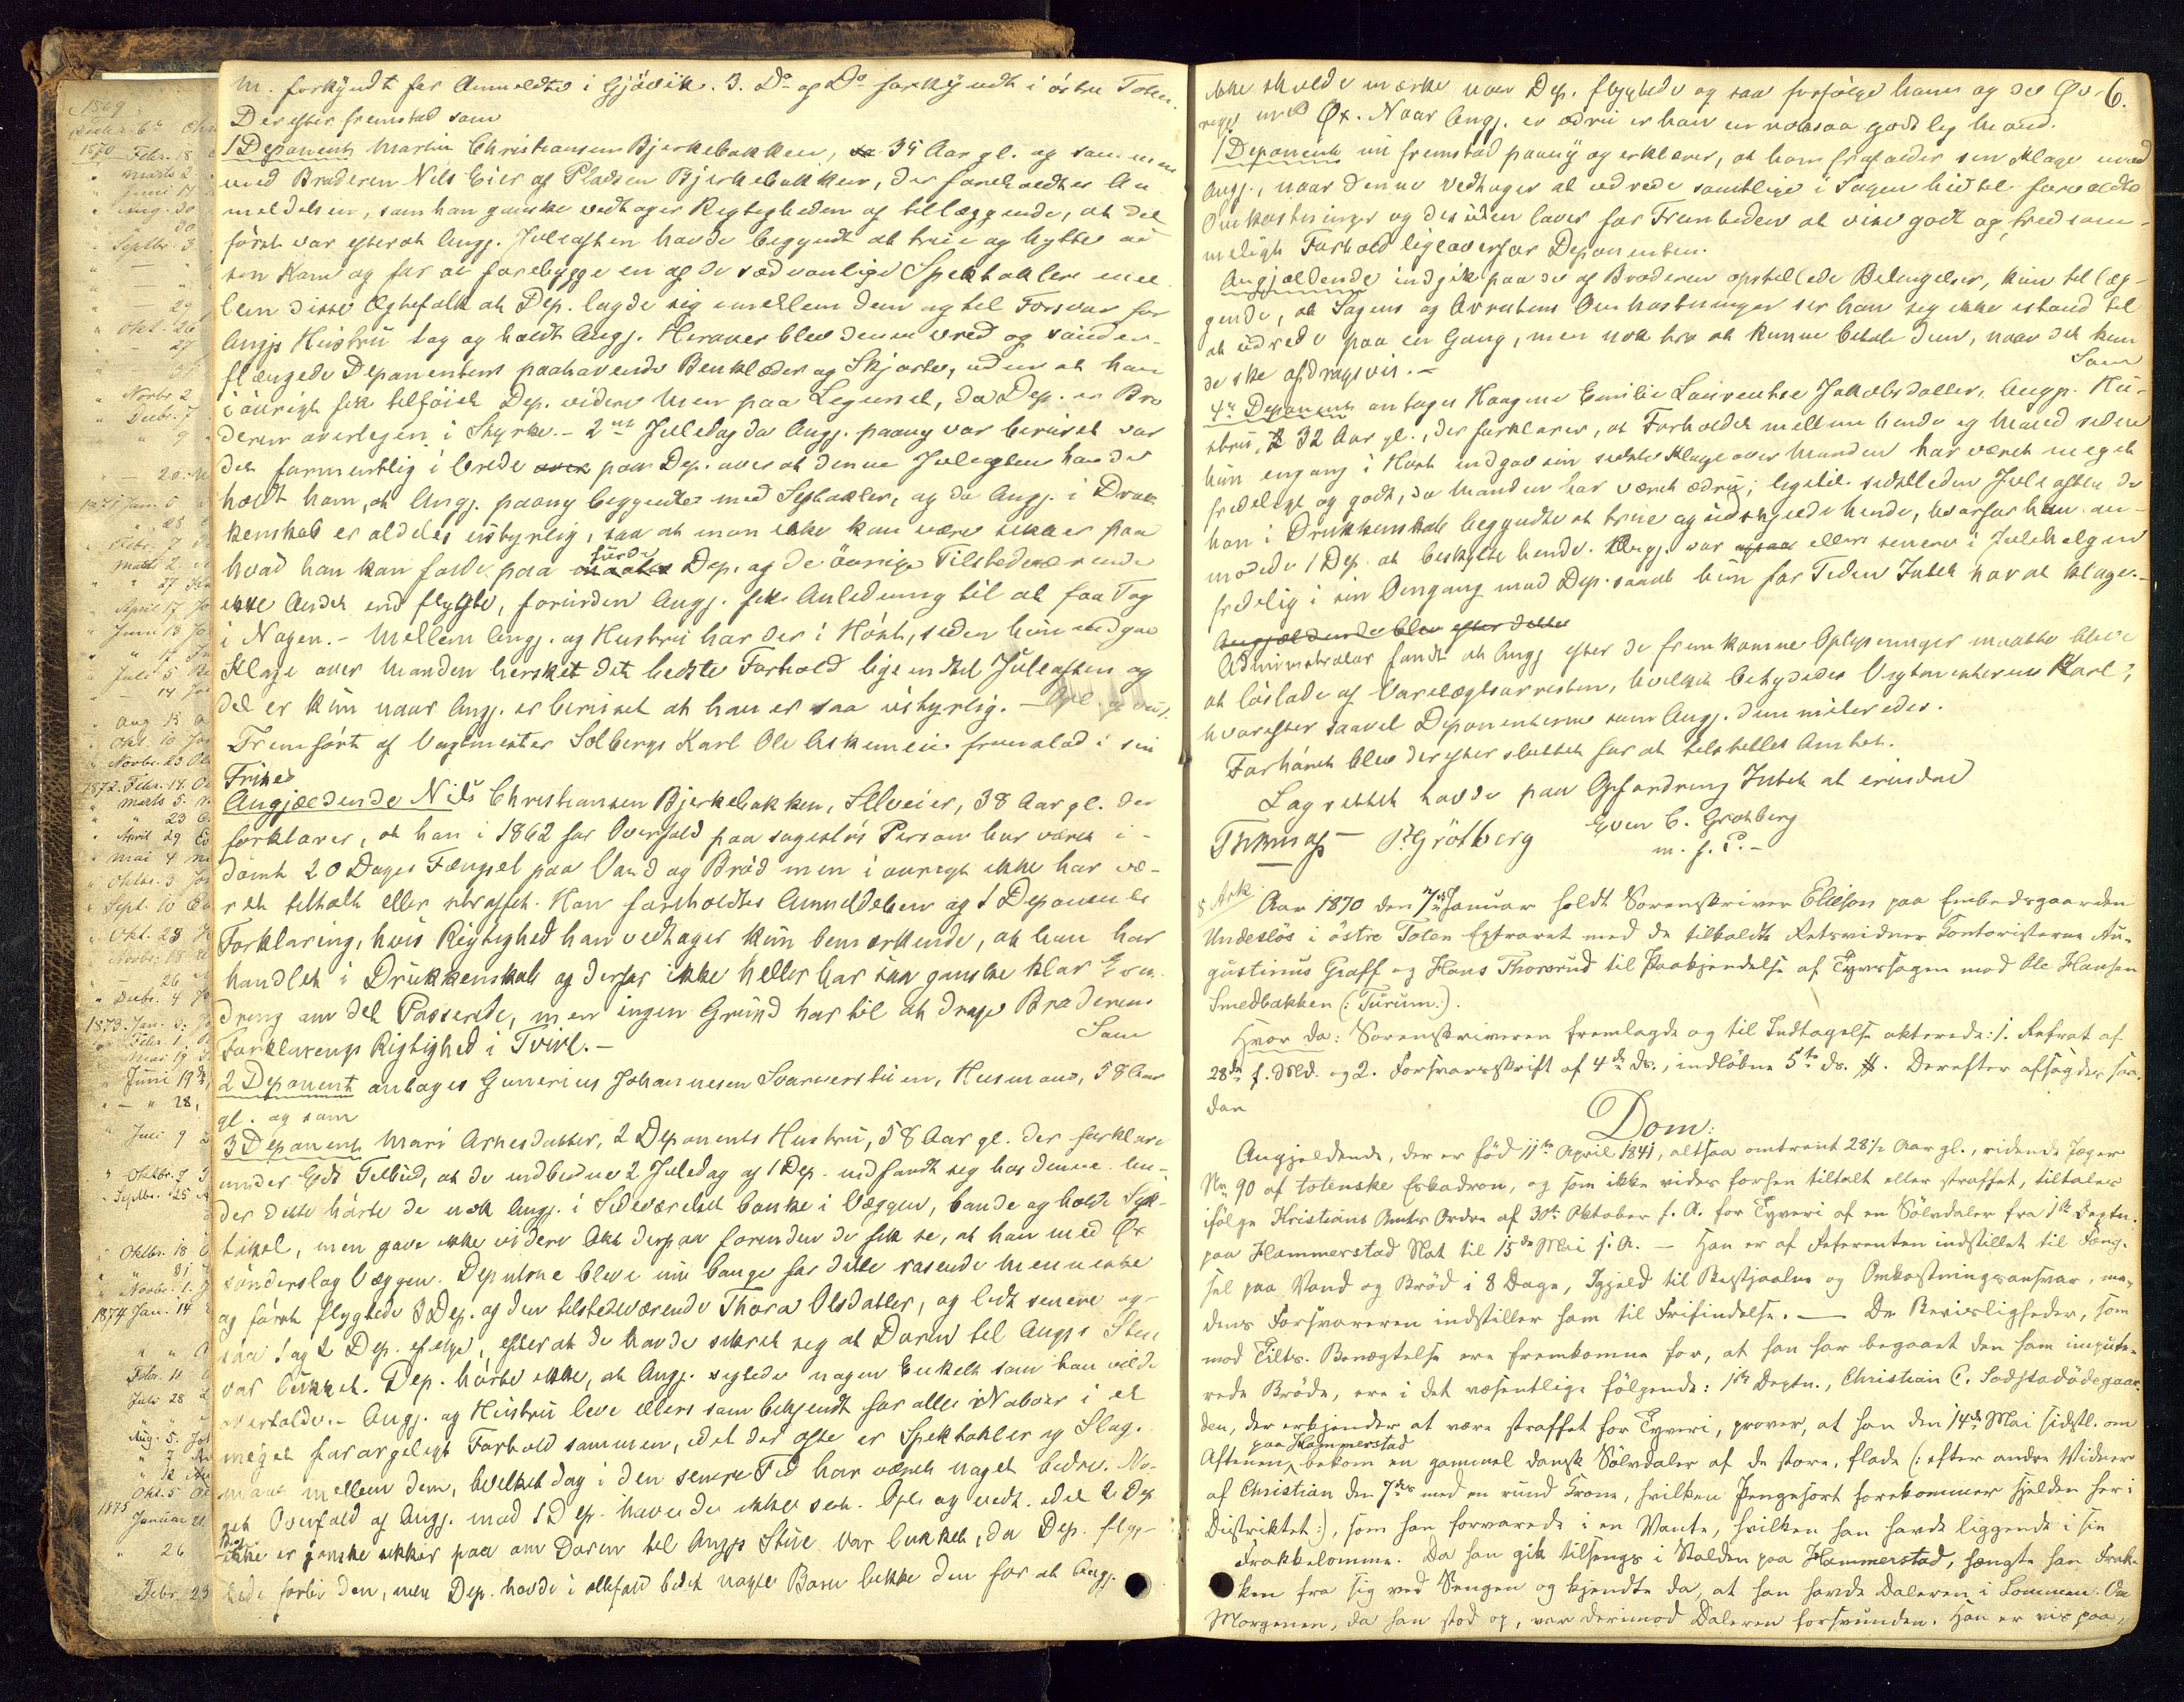 M. forkyndt for Anmeldte i Gjövik. 3. Do og Do forkyndt i östre Toten.
Derefter fremstod som
1 Deponent Martin Christiansen Bjerkebakken, 35 Aar gl. og sammen
med Broderen Nils Eier af Pladsen Bjerkebakken, der foreholdtes An
meldelsen, som han ganske vedtager Rigtigheden af tillæggende, at det
först var efterat Angj. Juleaften havde begyndt at true og hytte ad
sin Kone og for at forebygge en af de sædvanlige Spektakler mel
lem disse Ægtefolk at Dep. lagde sig imellem dem og til Forsvar for
Angjs Hustru tog og holdt Angj. Herover blev denne vred og sönder-
flængede Deponentens paahavende Benklæder og Skjorte, uden at han
iövrigt fik tilföiet Dep. videre Men paa Legemet, da Dep. er Bro
deren overlegen i Styrke. - 2den Juledag da Angj. paany var beruset var
det formentlig i Vrede paa Dep. over at denne Juleaften havde
holdt ham, at Angj. paany begyndte med Spektakler, og da Angj. i Druk
kenskab er aldeles ustyrlig, saa at man ikke kan være sikker paa
hvad han kan falde paa turde Dep. og de övrige Tilstedeværende
ikke Andet end flygte, forinden Angj. fik Anledning til at faa Tag
i Nogen. - Mellem Angj. og Hustru har der i Höst, siden hun indgav
Klage over Manden hersket det bedste Forhold lige indtil Juleaften og
det er kun naar Angj. er beruset at han er saa ustyrlig. - Opl. og vedt.
Fremfört af Vagtmester Solbergs Karl Ole Askemeie fremstod i sin
Frihed
Angjældende Nils Christiansen Bjerkebakken, Selveier, 38 Aar gl. der
forklarer, at han i 1862 for Overfald paa sageslös Person har været i-
dömt 20 Dages Fængsel paa Vand og Bröd men iövrigt ikke har væ-
ret tiltalt eller straffet. Han foreholdtes Anmeldelsen og 1 Deponents
Forklaring, hvis Rigtighed han vedtager kun bemærkende, at han har
handlet i Drukkenskab og derfor ikke heller har saa ganske klar Erin
dring om det Passerede, men ingen Grund har til at drage Broderens
Forklarings Rigtighed i Tvivl. -
Som
2 Deponent antoges Gunerius Johannesen Svarverstuen, Husmand, 58 Aar
gl. og som
3 Deponent Mari Arnesdatter, 2 Deponents Hustru, 58 Aar gl. der forklare
under Eds Tilbud, at de indbudne 2 Juledag af 1 Dep. indfandt sig hos denne. Un-
der dette hörte de nok Angj. i Sideværelset banke i Væggen, bande og holde Spek-
takel, men gave ikke videre Akt derpaa forinden de fik se, at han med Öx
sönderslog Væggen. Deptene bleve nu bange for dette rasende Menneske
og först flygtede 3 Dep. og den tilstedeværende Thora Olsdatter, og lidt senere og-
saa 1 og 2 Dep. efter, efterat de havde sikret sig at Dören til Angjs Stue
var lukket. Dep. hörte ikke, at Angj. sigtede nogen Enkelt som han vilde
overfalde. - Angj. og Hustru leve ellers som bekjendt for alle Naboer i et
meget forargeligt Forhold sammen, idet der ofte er Spektakler og Slag-
maal mellem dem, hvilket dog i den senere Tid har været noget bedre. No-
get Overfald af Angj. mod 1 Dep. havde de ikke seet. Opl. og vedt. idet 2 Dep
ikke er ganske sikker paa om Dören til Angjs Stue var lukket, da Dep. flyg-
tede forbi den, men Dep. havde i altfald bedet nogle Börn lukke den for at Angj.
6.
ikke skulde mærke naar Dep. flygtede og saa forfölge ham og de Öv-
rige med Öx. Naar Angj. er ædru er han en noksaa godslig Mand.
1 Deponent nu fremstod paany og erklærer, at han frafalder sin Klage mod
Angj., naar denne vedtager at udrede samtlige i Sagen hidtil forvoldte
Omkostninger og desuden lover for Fremtiden at vise godt og fredsom-
meligt Forhold ligeoverfor Deponenten.
Angjældende indgik paa de af Broderen opstillede Betingelser, kun tillæg-
gende, at Sagens og Arrestens Omkostninger ser han sig ikke istand til
at udrede paa en Gang, men nok tror at kunne betale dem, naar det kun
de ske afdragsvis. -
Som
4de Deponent antoges Kaagine Emilie Laurentse Jakobsdatter, Angjs. Hu-
stru, 32 Aar gl., der forklarer, at Forholdet mellem hende og Mand siden
hun engang i Höst indgav sin sidste Klage over Manden har været meget
fredeligt og godt, da Manden har været ædru, ligetil sidstleden Juleaften da
han i Drukkenskab begyndte at true og udskjelde hende, hvorfor hun an-
modede 1 Dep. at beskytte hende. Angj. var ellers senere i Julehelgen
fredelig i sin Omgang med Dep. saaat hun for Tiden Intet har at klage. -
Angjældende blev efter dette
Administrator fandt at Angj. efter de fremkomne Oplysninger maatte blive
at löslade af Varetægtsarresten, hvilket betydedes Vagtmesterens Karl,
hvorefter saavel Deponenterne som Angj. dimitteredes.
Forhöret blev derefter sluttet for at tilstilles Amtet.
Lagrettet havde paa Opfordring Intet at erindre
P. Grötberg
Even C. Grötberg
m. f. P. -
8 Ark
Aar 1870 den 7de Januar holdt Sorenskriver Elieson paa Embedsgaarden
Undeslös i östre Toten Extraret med de tilkaldte Retsvidner Kontoristerne Au-
gustinus Graff og Hans Thorsrud til Paakjendelse af Tyvssagen mod Ole Hansen
Smedbakken (: Turum:).
Hvor da: Sorenskriveren fremlagde og til Indtagelse akterede: 1. Referat af
28de f. Md. og 2. Forsvarsskrift af 4de ds., indlöbne 5te ds. #. Derefter afsagdes saa-
dan
Dom:
Angjeldende, der er föd 11te April 1841, altsaa omtrent 28½ Aar gl., ridende Jæger
No 90 af totenske Eskadron, og som ikke vides forhen tiltalt eller straffet, tiltales
ifölge Kristians Amts Ordre af 30te Oktober f. A. for Tyveri af en Sölvdaler fra 1ste Deptn.
paa Hammerstad Nat til 15de Mai f. A. - Han er af Referenten indstillet til Fæng-
sel paa Vand og Bröd i 8 Dage, Igjeld til Bestjaalne og Omkostningsansvar, me-
dens Forsvareren indstiller ham til Frifindelse. - De Bevisligheder, som
mod Tilts. Benægtelse ere fremkomne for, at han har begaaet den ham impute-
rede Bröde, ere i det væsentlige fölgende: 1ste Deptn., Christian C. Sodstadödegaar-
den, der erkjender at være straffet for Tyveri, prover, at han den 14de Mai sidstl. om
Aftenen paa Hammerstad bekom en gammel dansk Sölvdaler af de store, flade (: efter andre Vidner
af Christian den 7des med en rund Krone, hvilken Pengesort forekommer sjelden her i
Distriktet:), som han forvarede i en Vante, hvilken han havde liggende i sin
Frakkelomme. Da han gik tilsengs i Stalden paa Hammerstad, hængte han Frak-
ken fra sig ved Sengen og kjendte da, at han havde Daleren i Lommen. Om
Morgenen, da han stod op, var derimod Daleren forsvunden. Han er vis paa,